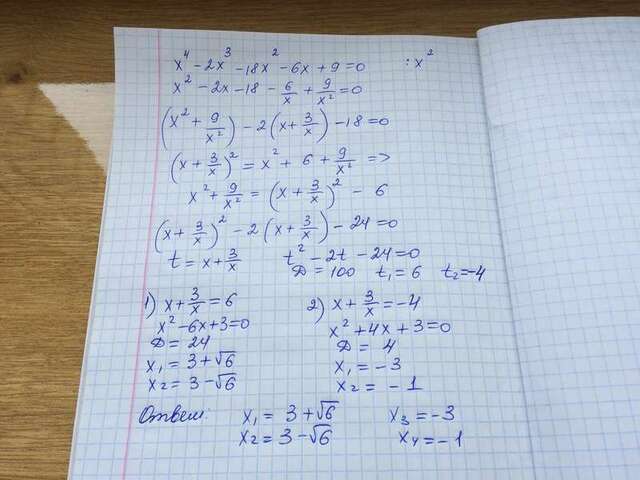 x⁴ - 2x³ - 18x² - 6x + 9 = 0 : x²
x² - 2x - 18 - 6/x + 9/x² = 0
(x² + 9/x²) - 2(x + 3/x) - 18 = 0
(x + 3/x)² = x² + 6 + 9/x² =>
x² + 9/x² = (x + 3/x)² - 6
(x + 3/x)² - 2(x + 3/x) - 24 = 0
t = x + 3/x t² - 2t - 24 = 0
D = 100 t₁ = 6 t₂ = -4
1) x + 3/x = 6
x² - 6x + 3 = 0
D = 24
x₁ = 3 + √6
x₂ = 3 - √6
2) x + 3/x = -4
x² + 4x + 3 = 0
D = 4
x₁ = -3
x₂ = -1
Ответ: x₁ = 3 + √6 x₃ = -3
x₂ = 3 - √6 x₄ = -1